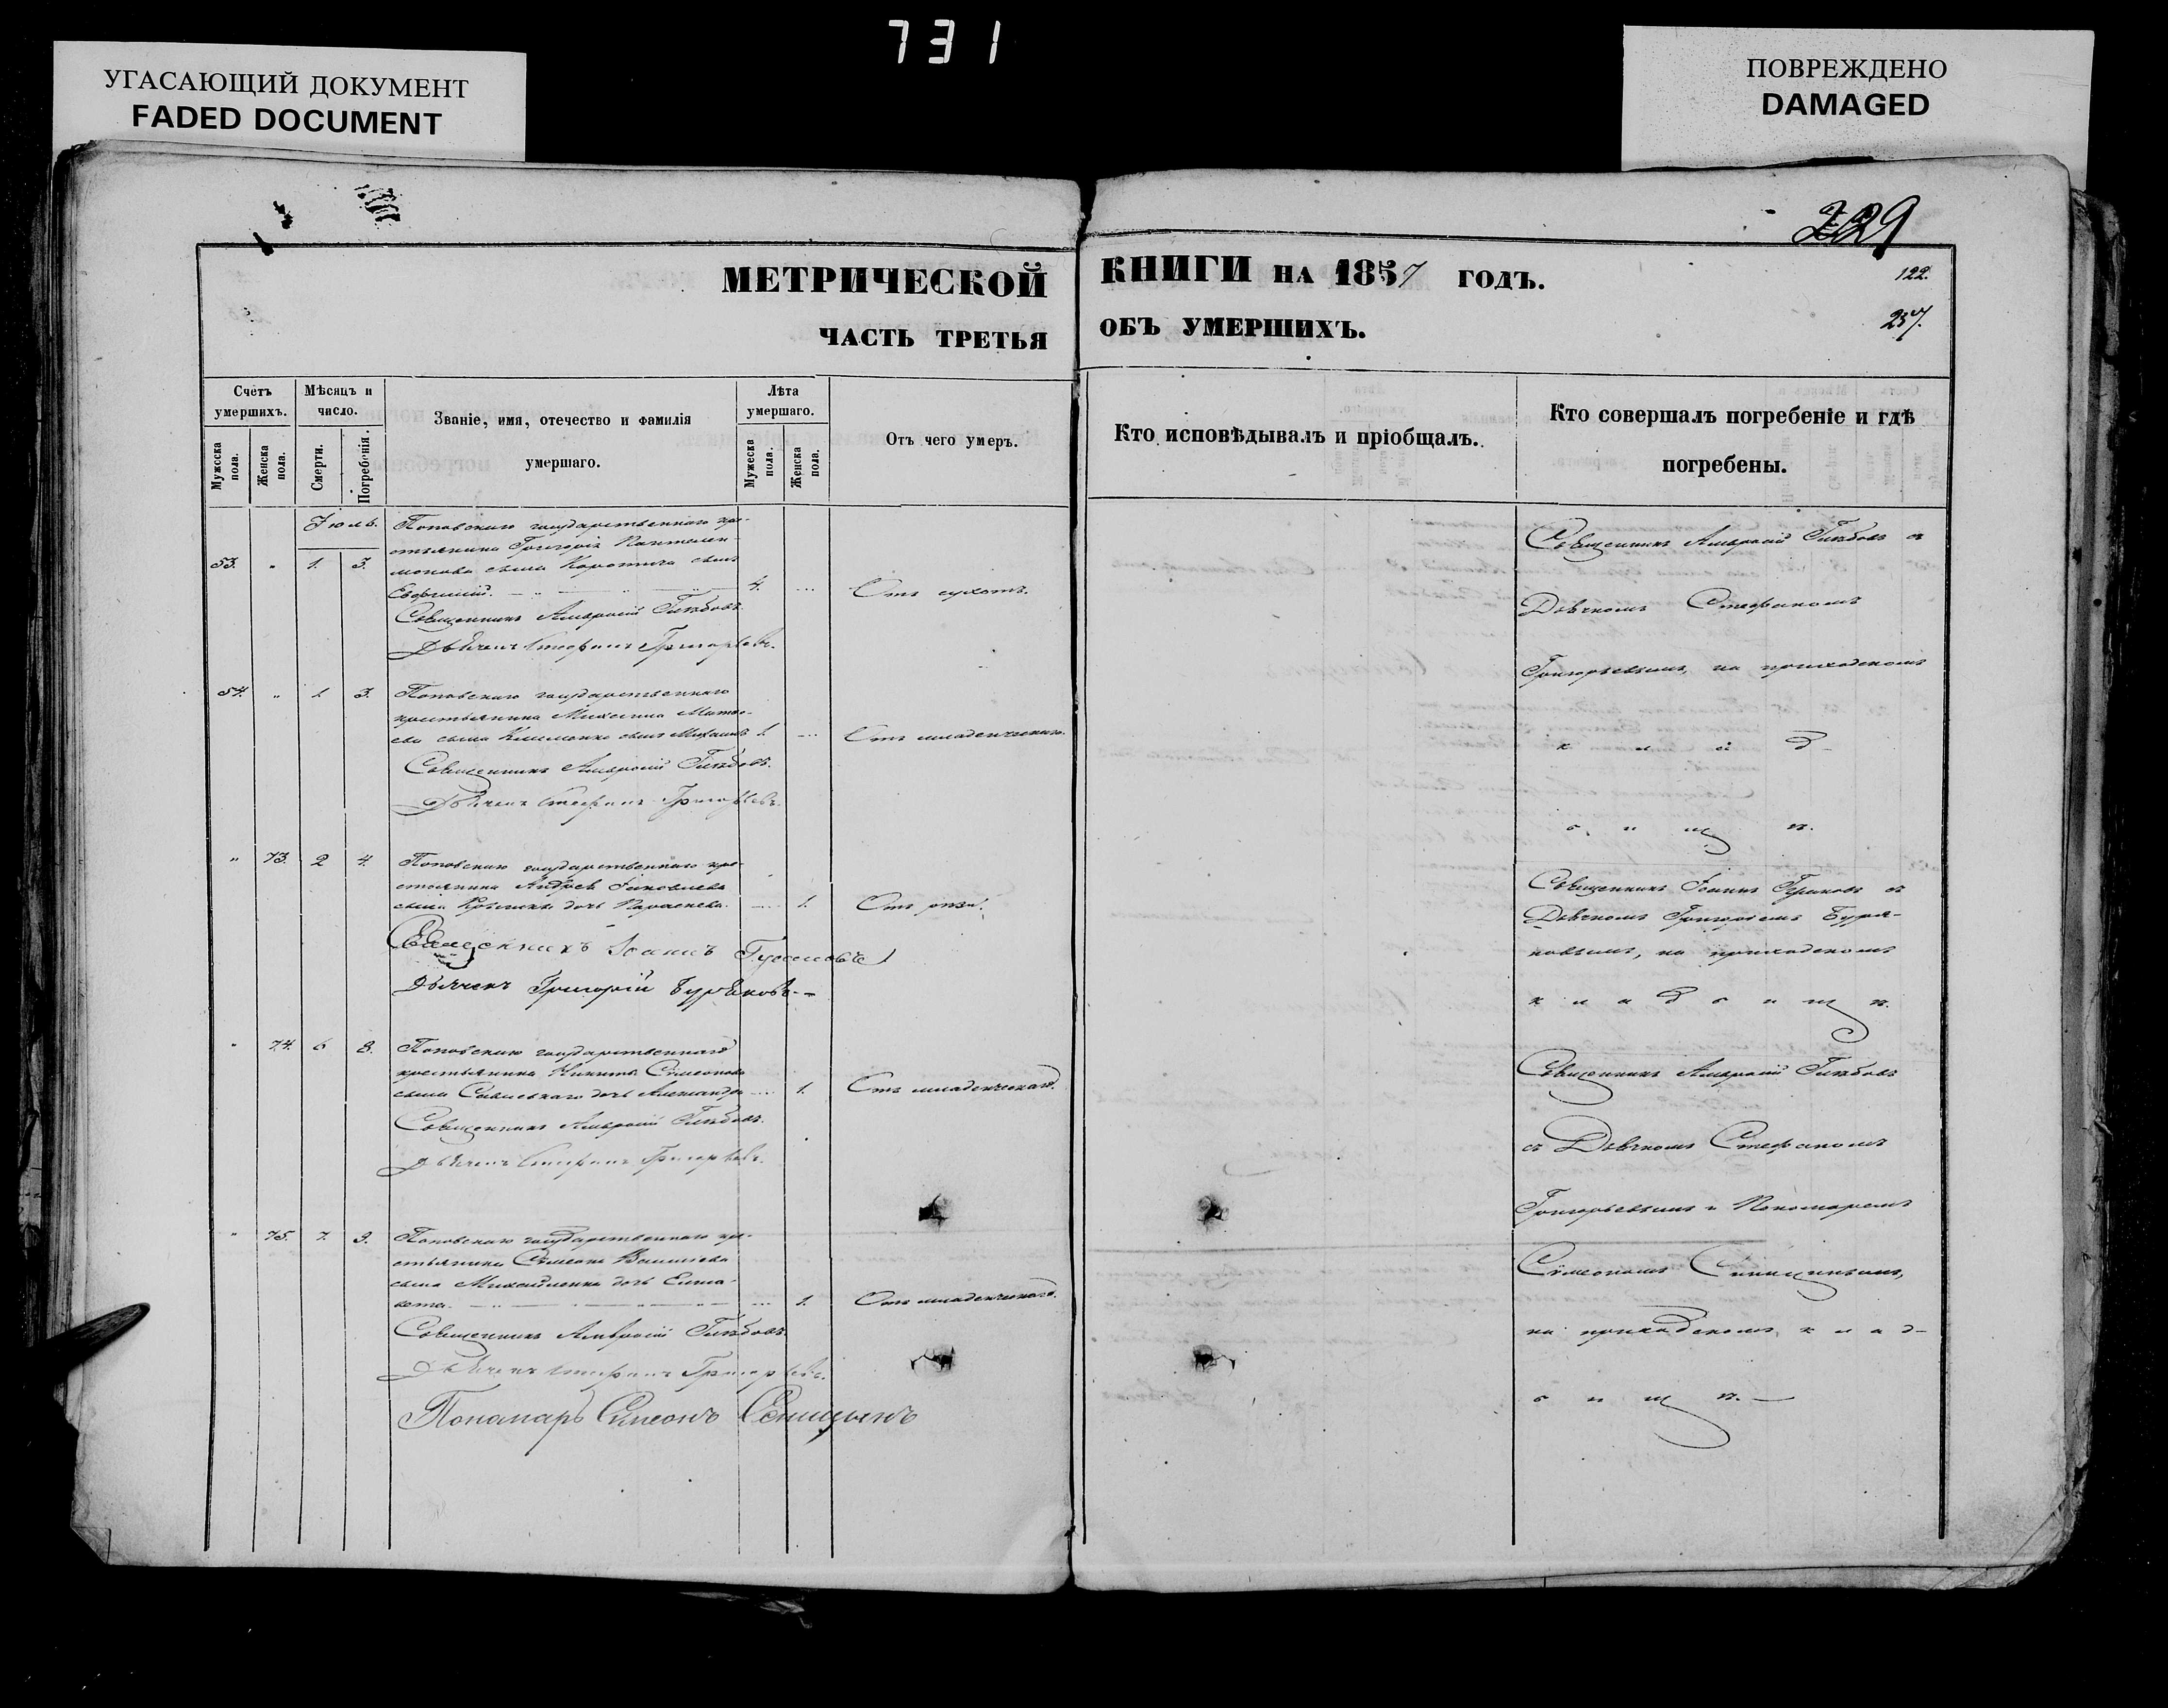 731
УГАСАЮЩИЙ ДОКУМЕНТ
FADED DOCUMENT
ПОВРЕЖДЕНО
DAMAGED
229
МЕТРИЧЕСКОЙ КНИГИ НА 1857 ГОДЪ.
122.
ЧАСТЬ ТРЕТЬЯ ОБЪ УМЕРШИХЪ.
257.
Счетъ умершихъ.
Мужсска пола.
Женска пола.
Мѣсяцъ и число.
Смерти.
Погребенія.
Званіе, имя, отечество и фамилія умершаго.
Лѣта умершаго.
Мужеска пола.
Женска пола.
Отъ чего умеръ.
Кто исповѣдывалъ и пріобщалъ.
Кто совершалъ погребеніе и гдѣ погребены.
Іюль.
53. " 1. 3.
Поповскаго государственнаго кре-
стьянина Григорія Пантелеи-
монова сына Коротича сынъ
Евфимій. 4. Отъ сухотъ.
Священникъ Амвросій Глѣбовъ.
Дьячекъ Стефанъ Григорьевъ.
Священникъ Амвросій Глѣбовъ съ
Дьячкомъ Стефаномъ
Григорьевымъ, на приходскомъ
к л а д
б и щ ѣ.
54. " 1. 3.
Поповскаго государственнаго
крестьянина Михаила Матвѣ-
ева сына Клименко сынъ Михаилъ 1. Отъ младенческаго.
Священникъ Амвросій Глѣбовъ.
Дьячекъ Стефанъ Григорьевъ.
" 73. 2 4.
Поповскаго государственнаго кре-
стьянина Андрея Яковлева
сына дочь Параскева. 1. Отъ
Священникъ Іоаннъ
Дьячекъ Григорій Буряковъ
Священникъ Іоаннъ съ
Дьячкомъ Григоріемъ Буря-
ковымъ, на приходскомъ
к л а д б и щ ѣ.
" 74. 6 8.
Поповскаго государственнаго
крестьянина Никиты Симеонова
сына дочь Александра 1. Отъ младенческаго.
Священникъ Амвросій Глѣбовъ.
Дьячекъ Стефанъ Григорьевъ.
Священникъ Амвросій Глѣбовъ
съ Дьячкомъ Стефаномъ
Григорьевымъ и Пономаремъ
Симеономъ
на приходскомъ к л а д-
б и щ ѣ.
" 75. 7. 9.
Поповскаго государственнаго кре-
стьянина Симеона
сына Михайленка дочь Елиса-
вета. 1. Отъ младенческаго.
Священникъ Амвросій Глѣбовъ.
Дьячекъ Стефанъ Григорьевъ.
Понамарь Симеонъ